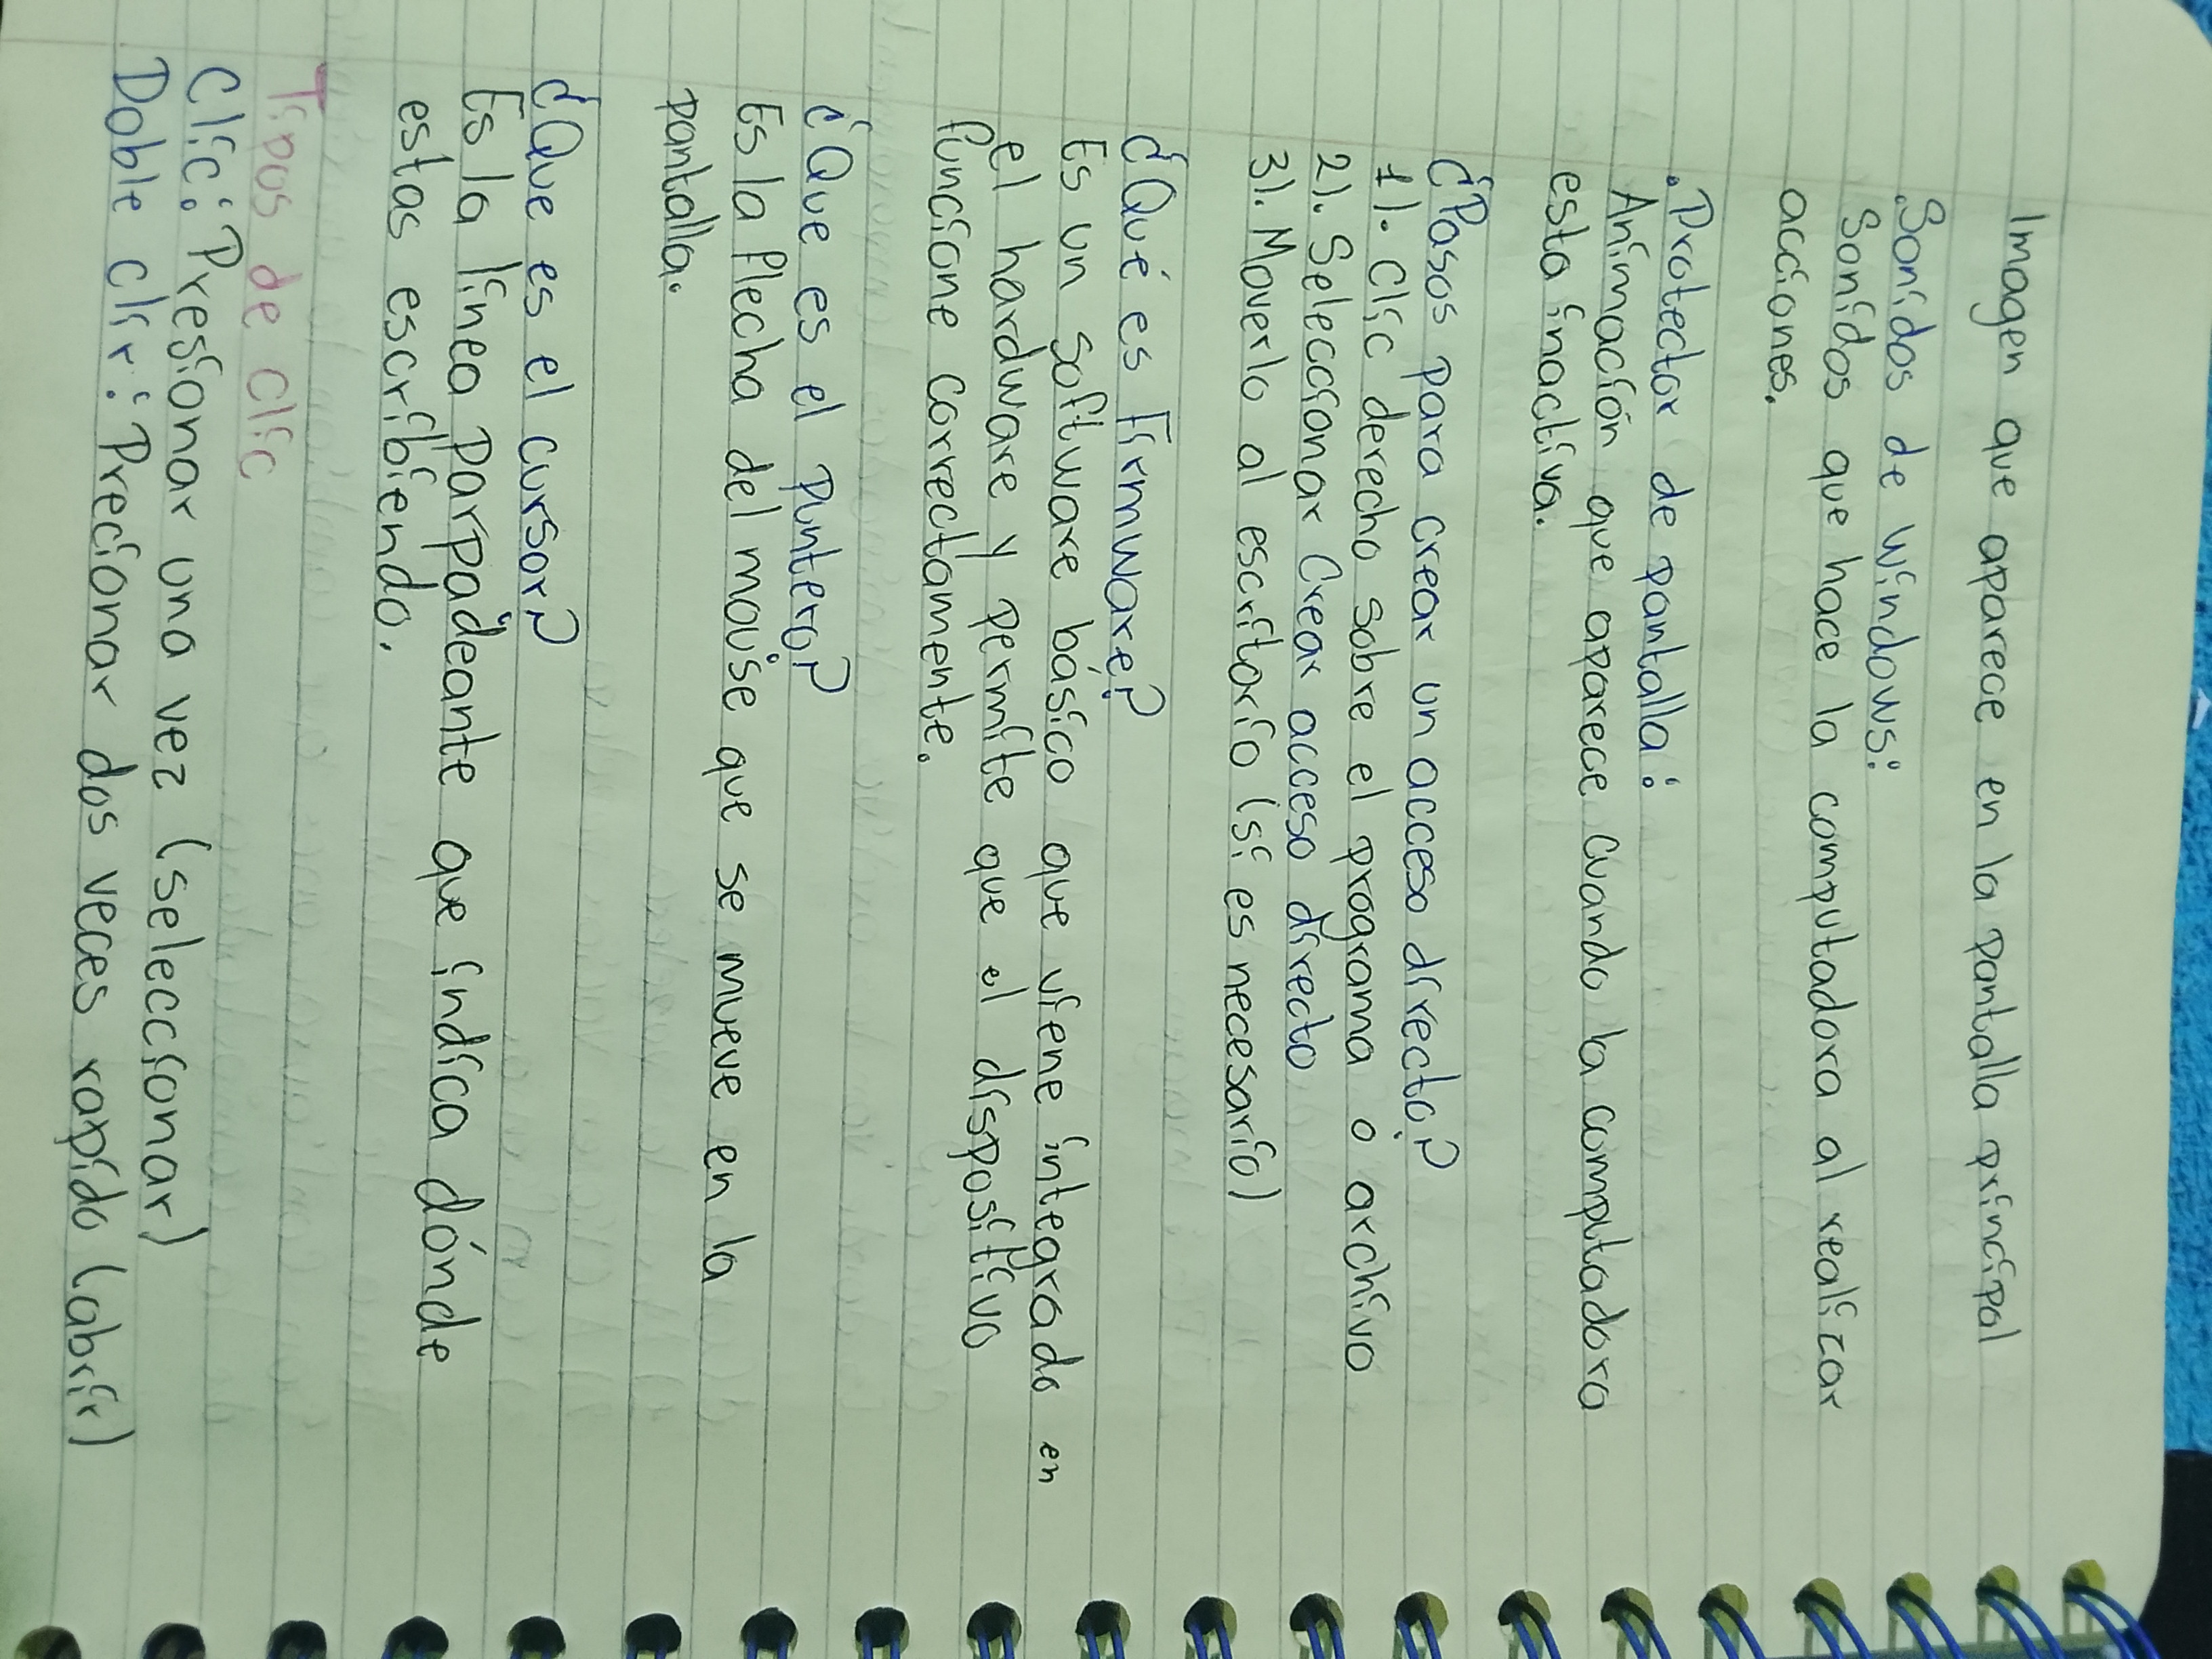 Imagen que aparece en la pantalla principal
.Sonidos de windows:
Sonidos que hace la computadora al realizar
acciones.
.Protector de pantalla:
Animación que aparece cuando la computadora
esta inactiva.
¿Pasos para crear un acceso directo?
1). Clic derecho sobre el programa o archivo
2). Seleccionar Crear acceso directo
3). Moverlo al escritorio (si es necesario)
¿Qué es Firmware?
Es un software básico que viene integrado en
el hardware y permite que el dispositivo
funcione correctamente.
¿Que es el puntero?
Es la flecha del mouse que se mueve en la
pantalla.
¿Que es el cursor?
Es la línea parpadeante que indica dónde
estas escribiendo.
Tipos de clic
Clic: Presionar una vez (seleccionar)
Doble clir: Precionar dos veces rapido (abrir)